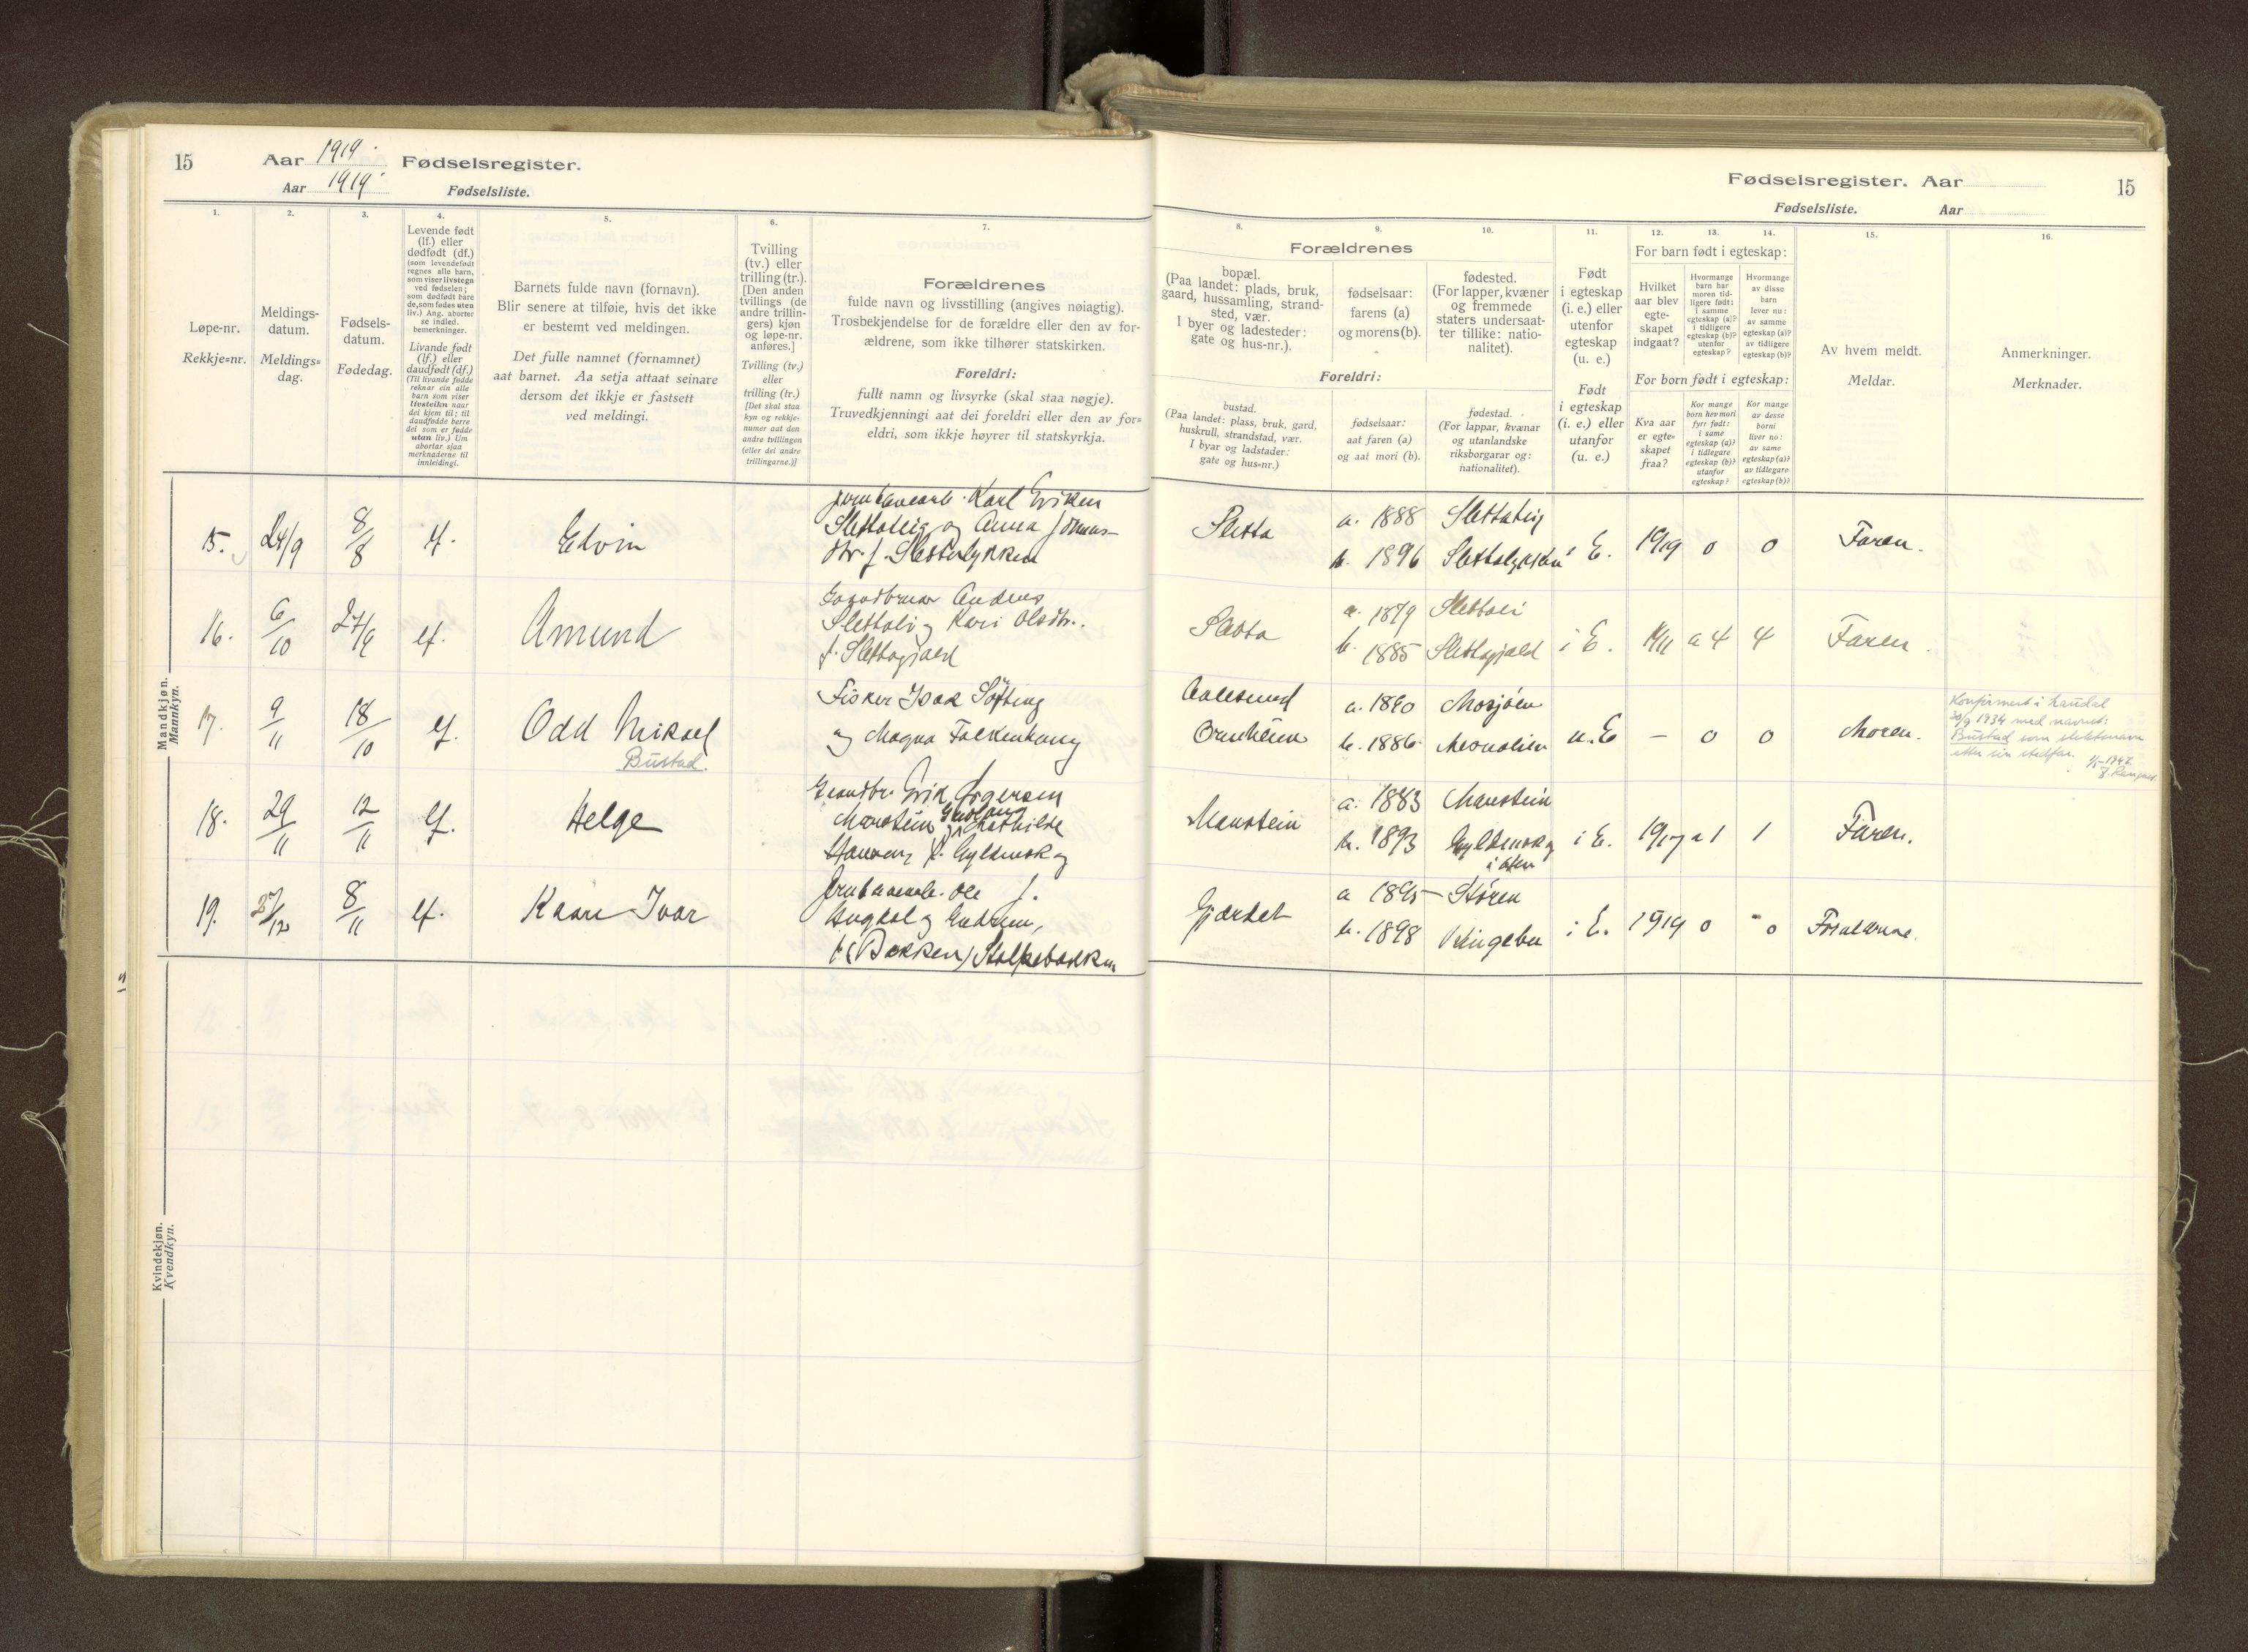 15
Aar 1919. Fødselsregister.
Aar 1919. Fødselsliste.
Fødselsregister. Aar
15
Fødselsliste. Aar
1.
Løpe-nr.
Rekkje=nr.
2.
Meldings-
datum.
Meldings=
dag.
3.
Fødsels-
datum.
Fødedag.
4.
Levende født
(lf.) eller
dødfødt (df.)
(som levendefødt
regnes alle barn,
som viser livstegn
ved fødselen;
som dødfødt bare
de, som fødes uten
liv.) Ang. aborter
se indled.
bemerkninger.
Livande født
(lf.) eller
daudfødt (df.)
(Til livande fødde
reknar ein alle
barn som viser
livsteikn naar
dei kjem til; til
daudfødde berre
dei som er fødde
utan liv.) Um
abortar sjaa
merknaderne til
innleidingi.
5.
Barnets fulde navn (fornavn).
Blir senere at tilføie, hvis det ikke
er bestemt ved meldingen.
Det fulle namnet (fornamnet)
aat barnet. Aa setja attaat seinare
dersom det ikkje er fastsett
ved meldingi.
6.
Tvilling
(tv.) eller
trilling (tr.).
[Den anden
tvillings (de
andre trillin-
gers) kjøn
og løpe-nr.
anføres.]
Tvilling (tv.)
eller
trilling (tr.)
[Det skal staa
kyn og rekkje-
numer aat den
andre tvillingen
(eller dei andre
trillingarne.)]
7.
Forældrenes
fulde navn og livsstilling (angives nøiagtig).
Trosbekjendelse for de forældre eller den av for-
ældrene, som ikke tilhører statskirken.
Foreldri:
fullt namn og livsyrke (skal staa nøgje).
Truvedkjenningi aat dei foreldri eller den av for=
eldri, som ikkje høyrer til statskyrkja.
8.
Forældrenes
bopæl.
(Paa landet: plads, bruk,
gaard, hussamling, strand-
sted, vær.
I byer og ladesteder:
gate og hus-nr.).
Foreldri:
bustad.
(Paa landet: plass, bruk, gard,
huskrull, strandstad, vær.
I byar og ladstader:
gate og hus=nr.)
9.
fødselsaar:
farens (a)
og morens (b).
fødselsaar:
aat faren (a)
og aat mori (b).
10.
fødested.
(For lapper, kvæner
og fremmede
staters undersaat-
ter tillike: natio-
nalitet).
fødestad.
(For lappar, kvænar
og utanlandske
riksborgarar og:
nationalitet).
11.
Født
i egteskap
(i. e.) eller
utenfor
egteskap
(u. e.)
Født
i egteskap
(i. e.) eller
utanfor
(u. e.)
12.
13.
14.
For barn født i egteskap:
Hvilket
aar blev
egte-
skapet
indgaat?
Hvormange
barn har
moren tid-
ligere født:
i samme
egteskap (a)?
i tidligere
egteskap (b)?
utenfor
egteskap?
Hvormange
av disse
barn
lever nu:
av samme
egteskap (a)?
av tidligere
egteskap (b)?
For born født i egteskap:
Kva aar
er egte=
skapet
fraa?
Kor mange
born hev mori
fyrr født:
i same
egteskap (a)?
i tidlegare
egteskap (b)?
utanfor
egteskap?
Kor mange
av desse
borni
liver no:
av same
egteskap (a)?
av tidlegare
egteskap (b)?
15.
Av hvem meldt.
Meldar.
16.
Anmerkninger.
Merknader.
Mandkjøn.
Mannkyn.
15. 24/9 8/8 lf. Edvin
Karl Eriksen
Slettalig og Anna Johans-
dtr. f. Slettalykken
Sletta a. 1888 Slettalig
b. 1896 Slettalykken i E. 1919 0 0 Faren.
16. 6/10 27/9 lf. Amund
Gaardbruker Anders
Slettali og Kari Olsdtr.
f. Slettagjæld
Sletta a. 1879 Slettali
b. 1885 Slettagjæld i E. 1911 a 4 4 Faren.
17. 9/11 18/10 lf. Odd Mikael
Bustad.
Fisker Isak Søfting
og Magna Falkenhaug
Aalesund a. 1890 Mosjøen
b. 1886 u. E – 0 0 Moren.
Konfirmert i
30/9 1934 med navnet:
Bustad som slektsnavn
etter sin stedfar.
18. 29/11 12/11 lf. Helge
Gaardbr. Erik Jørgensen
Manstein og Mathilde
f. Gyldenskog
Manstein a. 1883 Manstein
b. 1893 Gyldenskog i E. 1917 a 1 1 Faren.
19. 27/12 8/11 lf. Kaare Ivar
Ole J.
f. (Bakken) Stolpebakken
Gjærdet a 1895 Støren
b. 1898 Ringebu i E. 1919 0 0 Forældrene.
Kvindekjøn.
Kvendkyn.